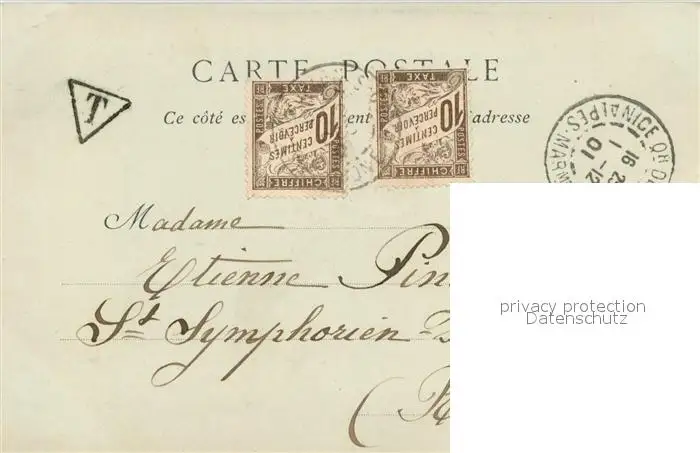 CARTE POSTALE
T
Ce côté es ent adresse
TAXE
POSTES
10
CENTIMES
PERCEVOIR
CHIFFRE
RF
TAXE
POSTES
10
CENTIMES
PERCEVOIR
CHIFFRE
RF
NICE
ALPES-MAR
16
1 -12
01
Madame
Etienne Pin
St Symphorien
privacy protection
Datenschutz